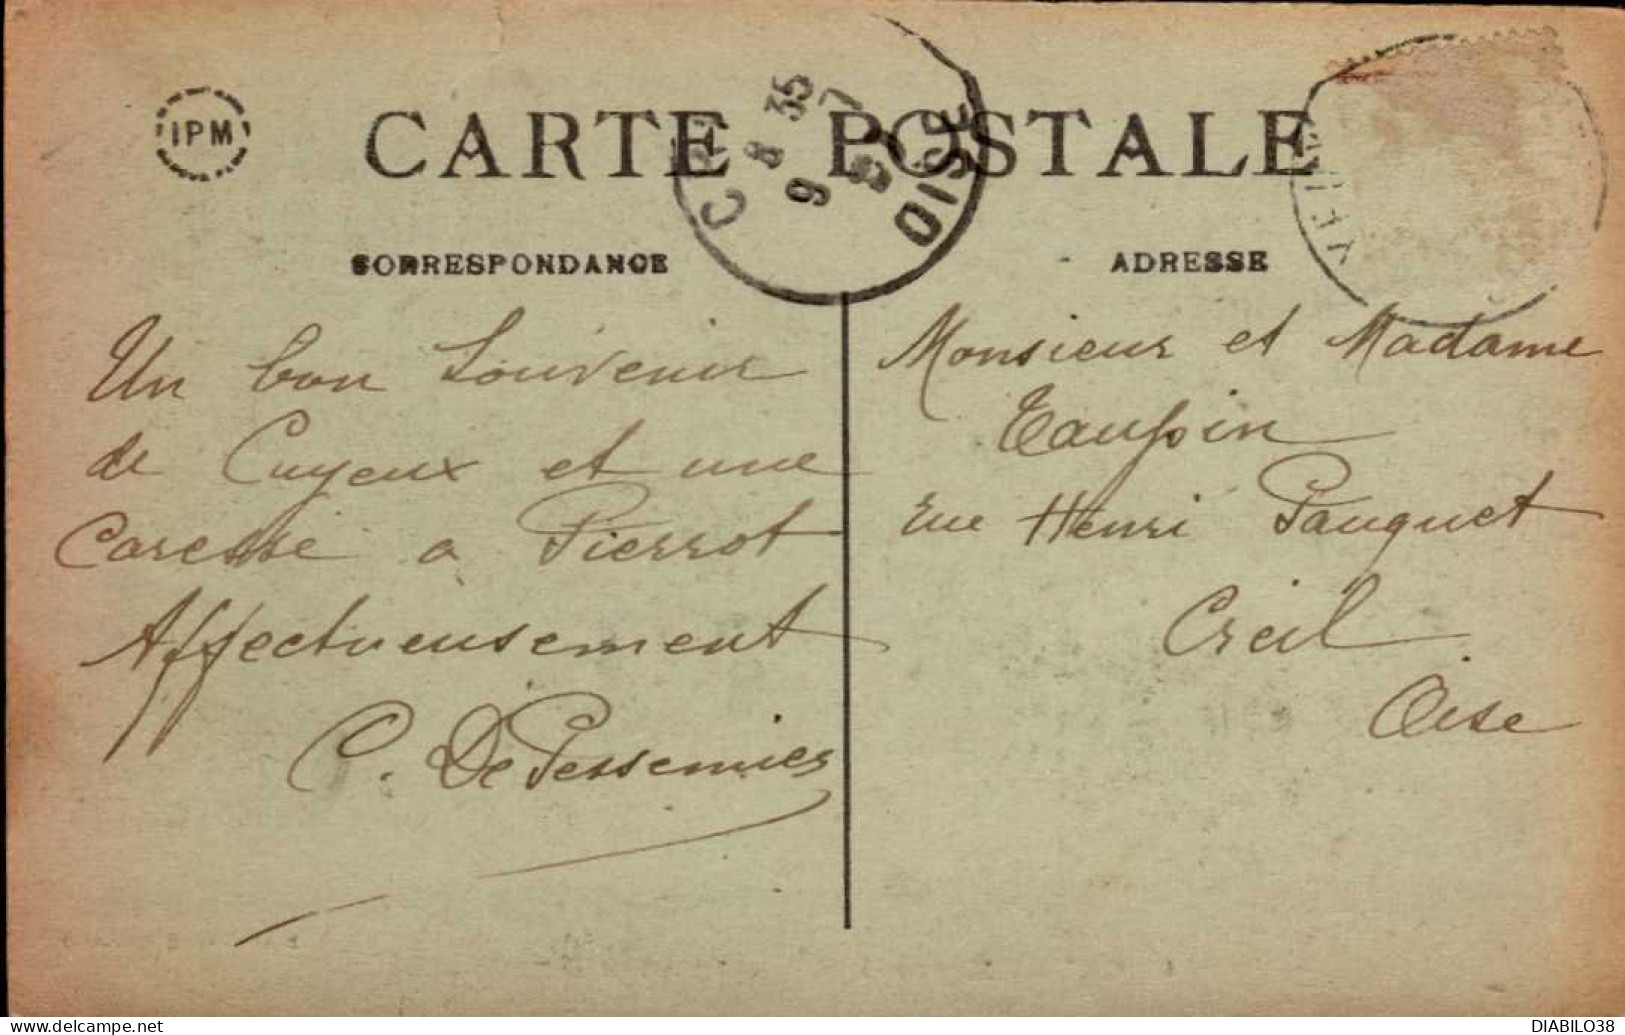 IPM
CARTE POSTALE
CORRESPONDANCE
ADRESSE
8 35
9
OISE
Un bon Souvenir
de Cuyeux et une
Caresse a Pierrot
Affectueusement
C. De Pessemier
Monsieur et Madame
Taupin
rue Henri Pauquet
Creil
Oise
DIABILO38